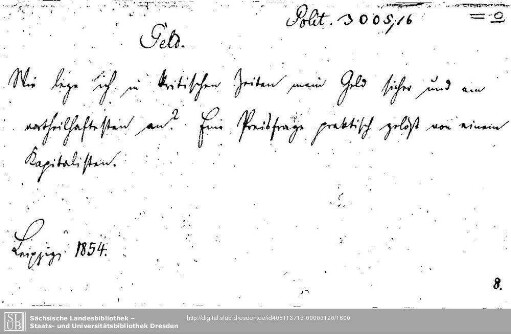 Polit. 3005,16 = 0
Geld.
Wie lege ich in kritischen Zeiten mein Geld sicher und am
vortheilhaftesten an? Eine Preisfrage praktisch gelöst von einem
Kapitalisten.
Leipzig, 1854.
8.
Sächsische Landesbibliothek –
Staats- und Universitätsbibliothek Dresden